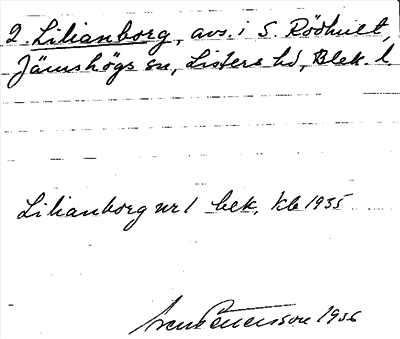 2. Lilianborg, avs. i S. Rödhult,
Jämshögs sn, Listers hd, Blek. l.
Lilianborg nr 1 bek, kb 1955
1956